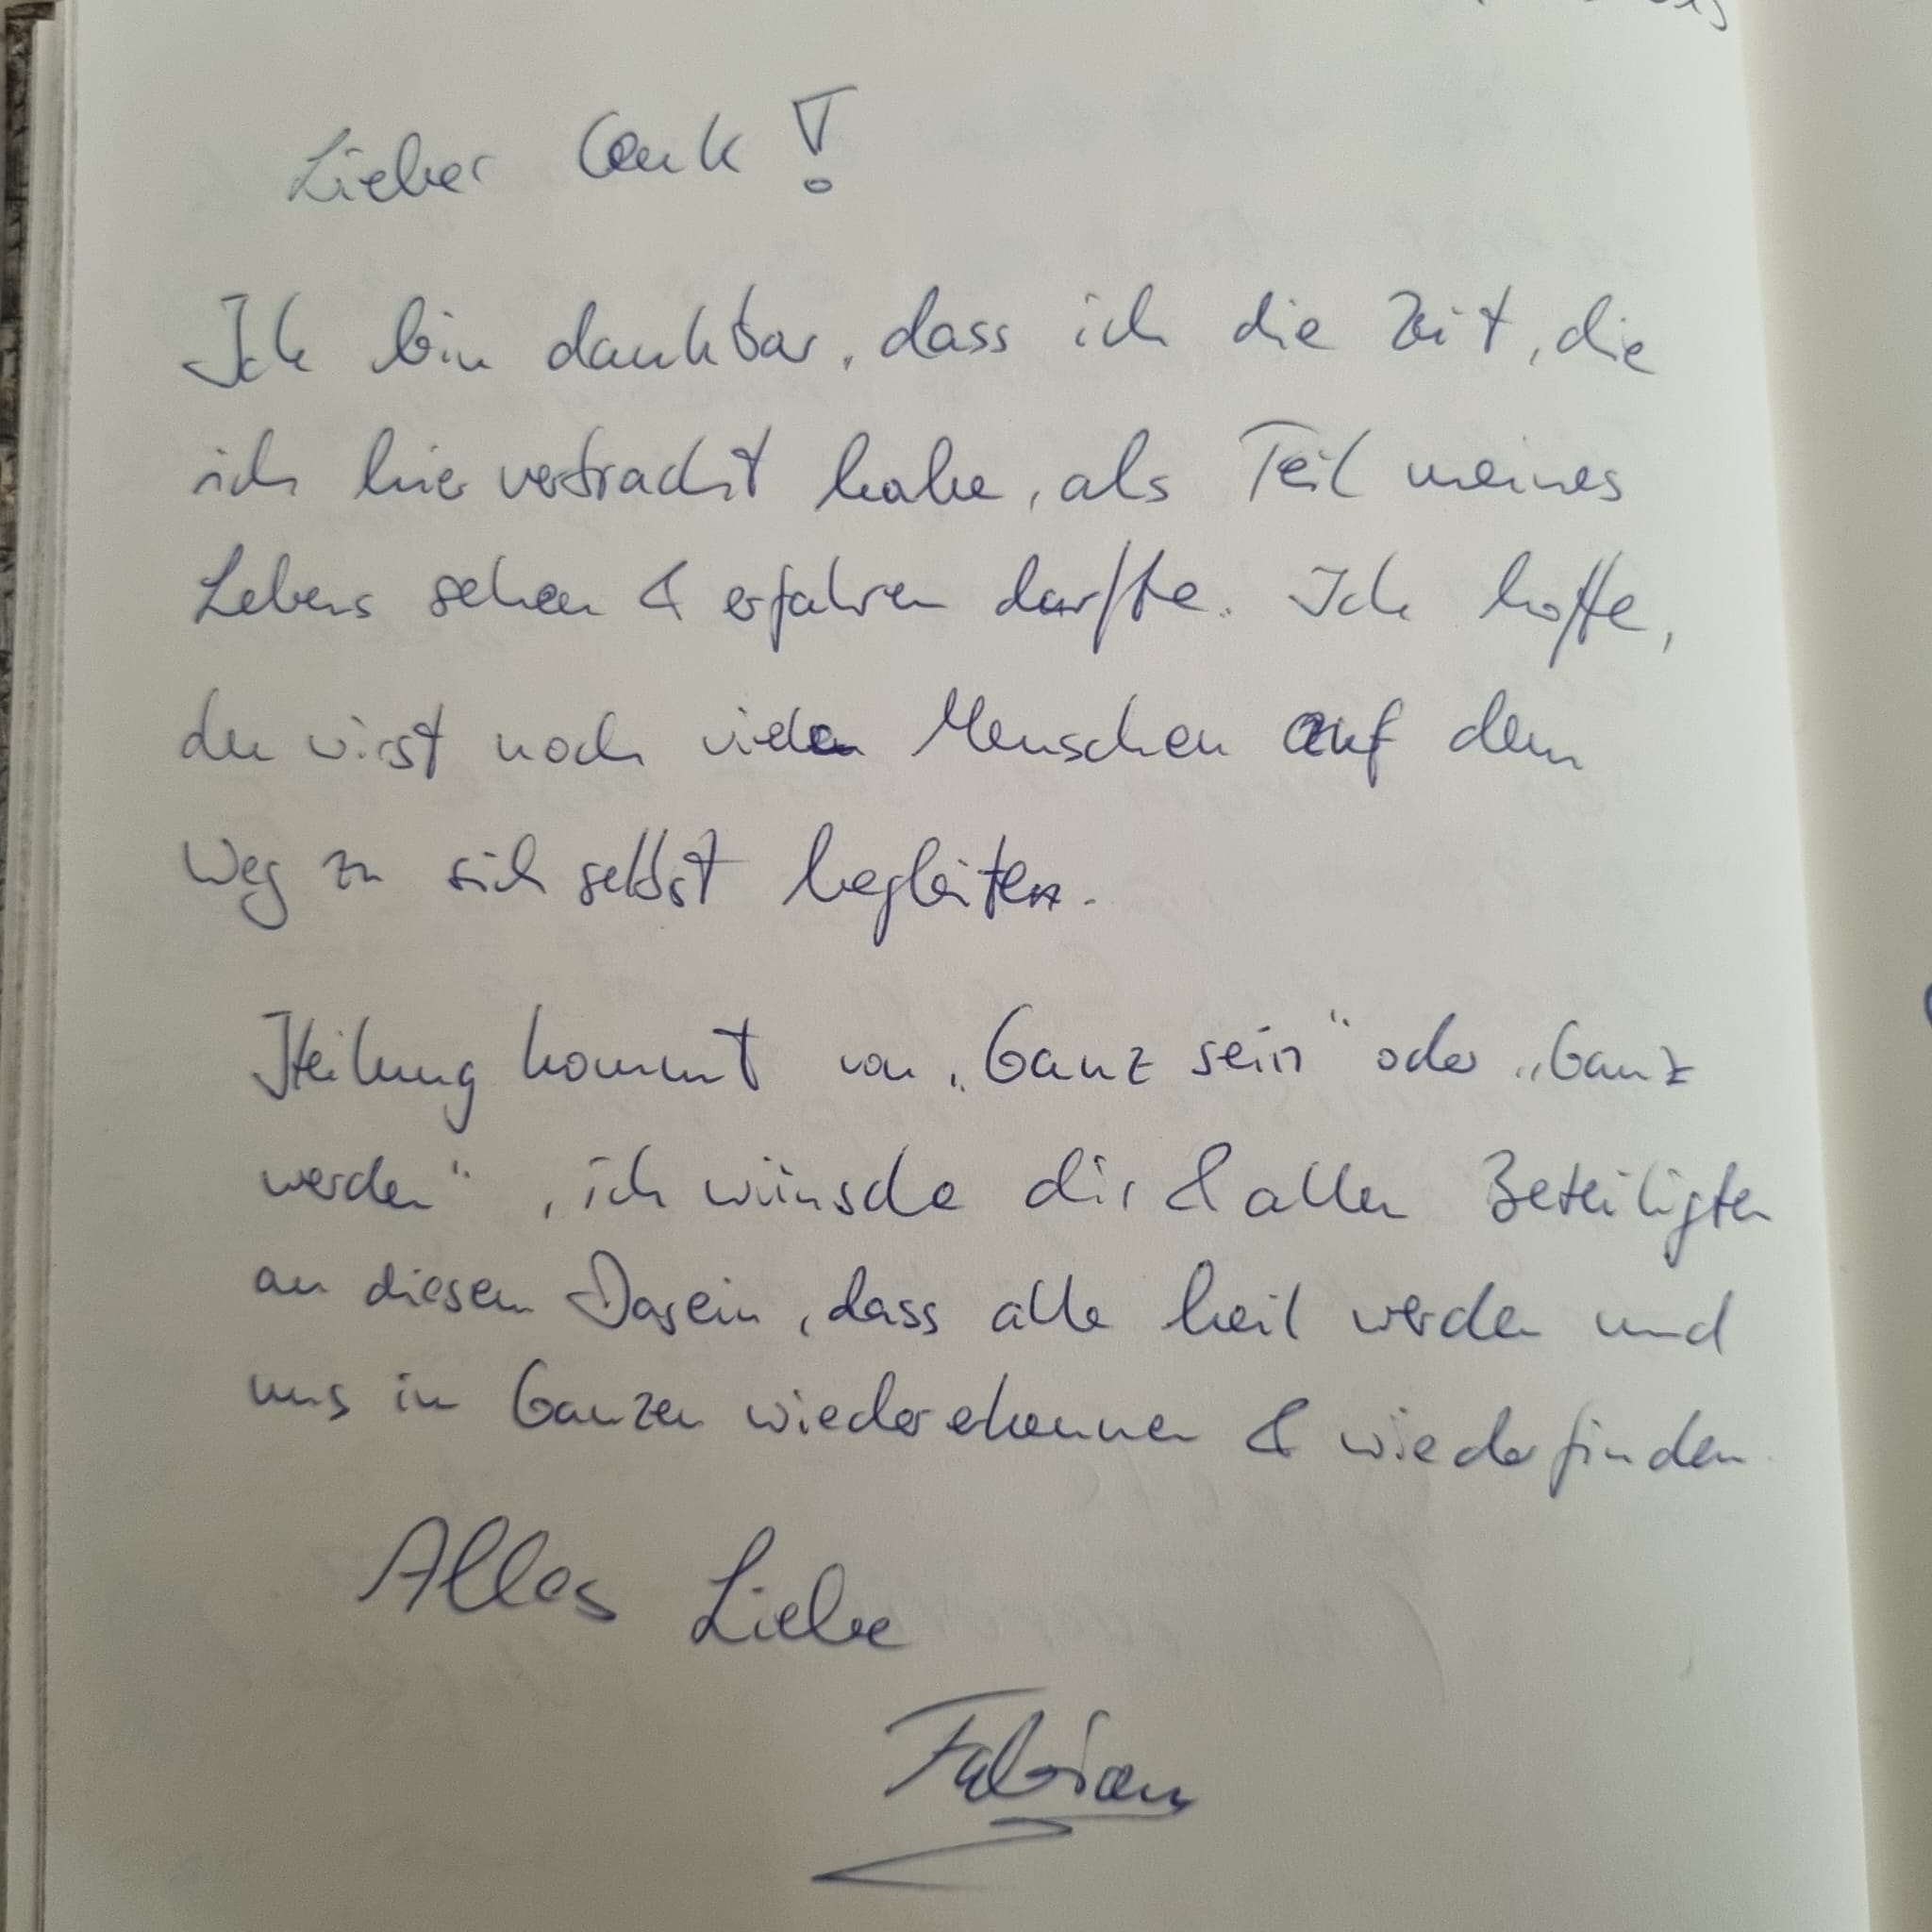 Lieber Cenk!
Ich bin dankbar, dass ich die Zeit, die
ich hier verbracht habe, als Teil meines
Lebens sehen & erfahren durfte. Ich hoffe,
du wirst noch vielen Menschen auf dem
Weg zu sich selbst begleiten.
Heilung kommt von „Ganz sein“ oder „Ganz
werden“, ich wünsche dir & allen Beteiligten
an diesem Dasein, dass alle heil werden und
uns im Ganzen wiedererkennen & wiederfinden.
Alles Liebe
Fabian